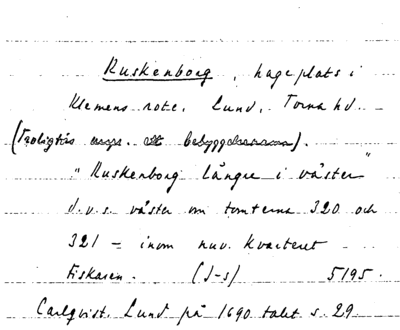 Ruskenborg, hageplats i
Klemens rote, Lund, Torna hd.
(Troligtvis urspr. ett bebyggelsenamn).
"Ruskenborg längre i väster"
d.v.s. väster om tomterna 320 och
321 = inom nuv. kvarteret
Fiskaren. (J-s) 5195.
Carlqvist, Lund på 1690 talet s. 29.